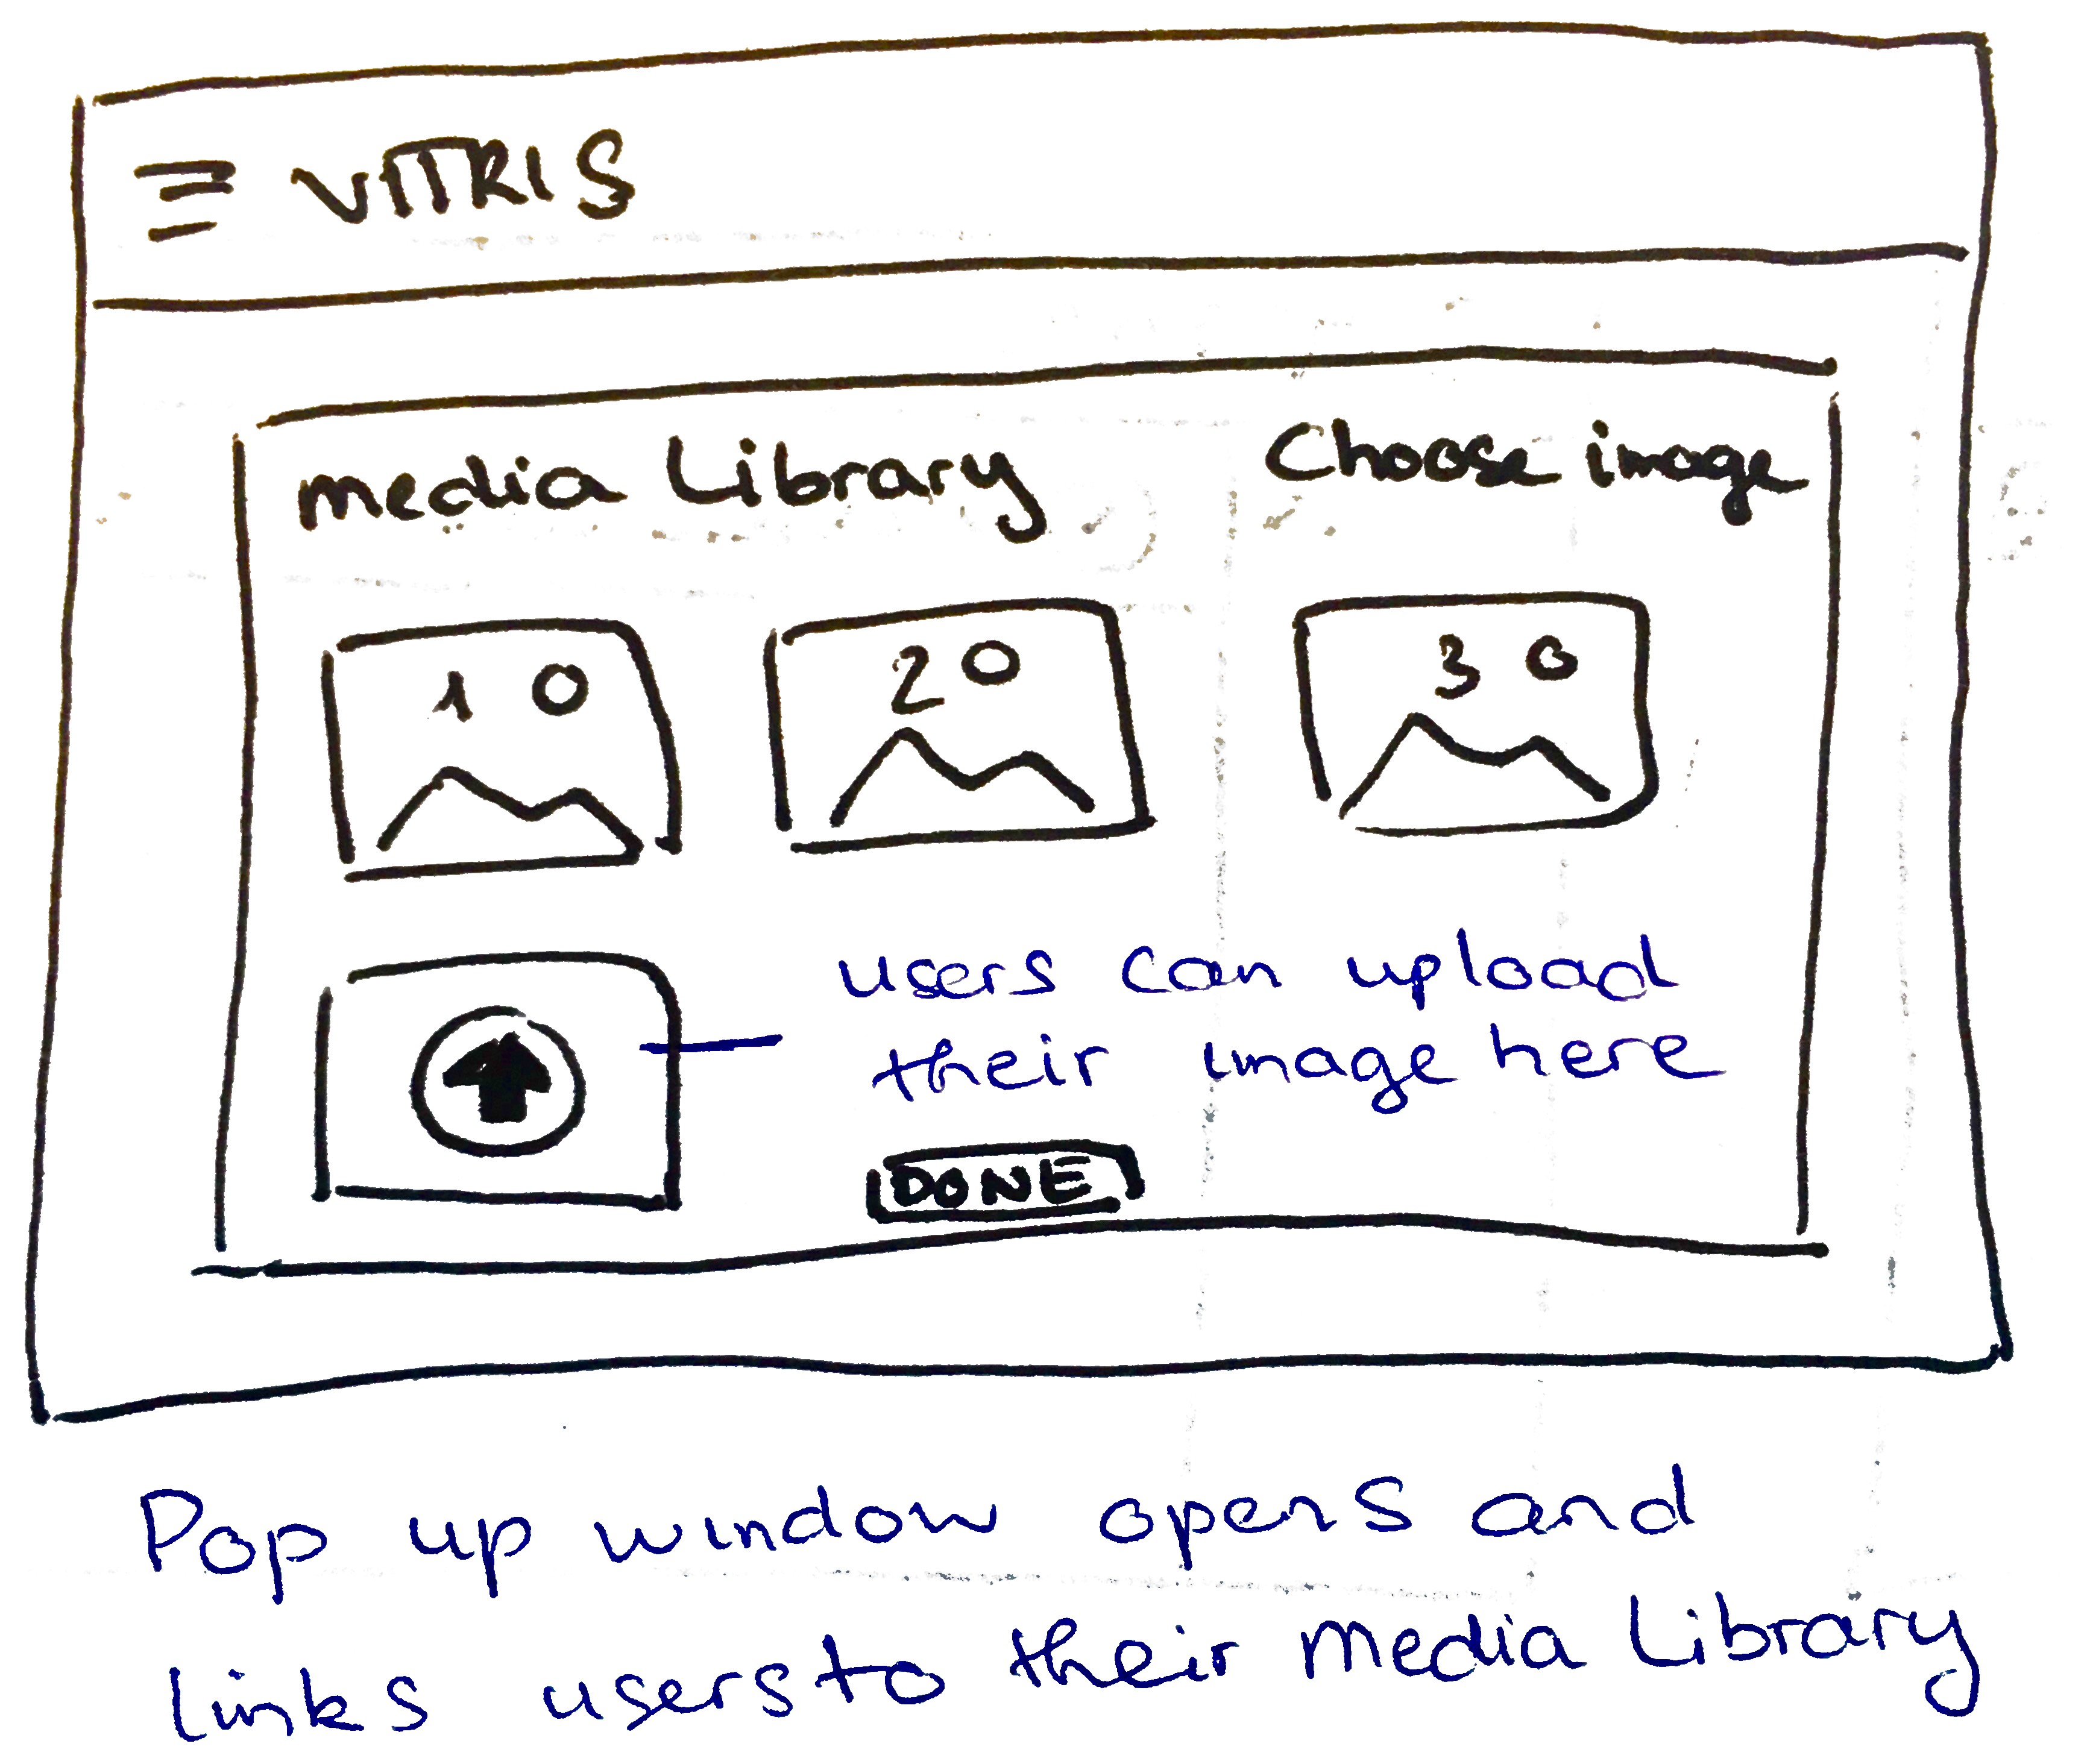 VITRIS
media Library Choose image
1 2 3
users can upload
their image here
DONE
Pop up window opens and
links users to their media Library